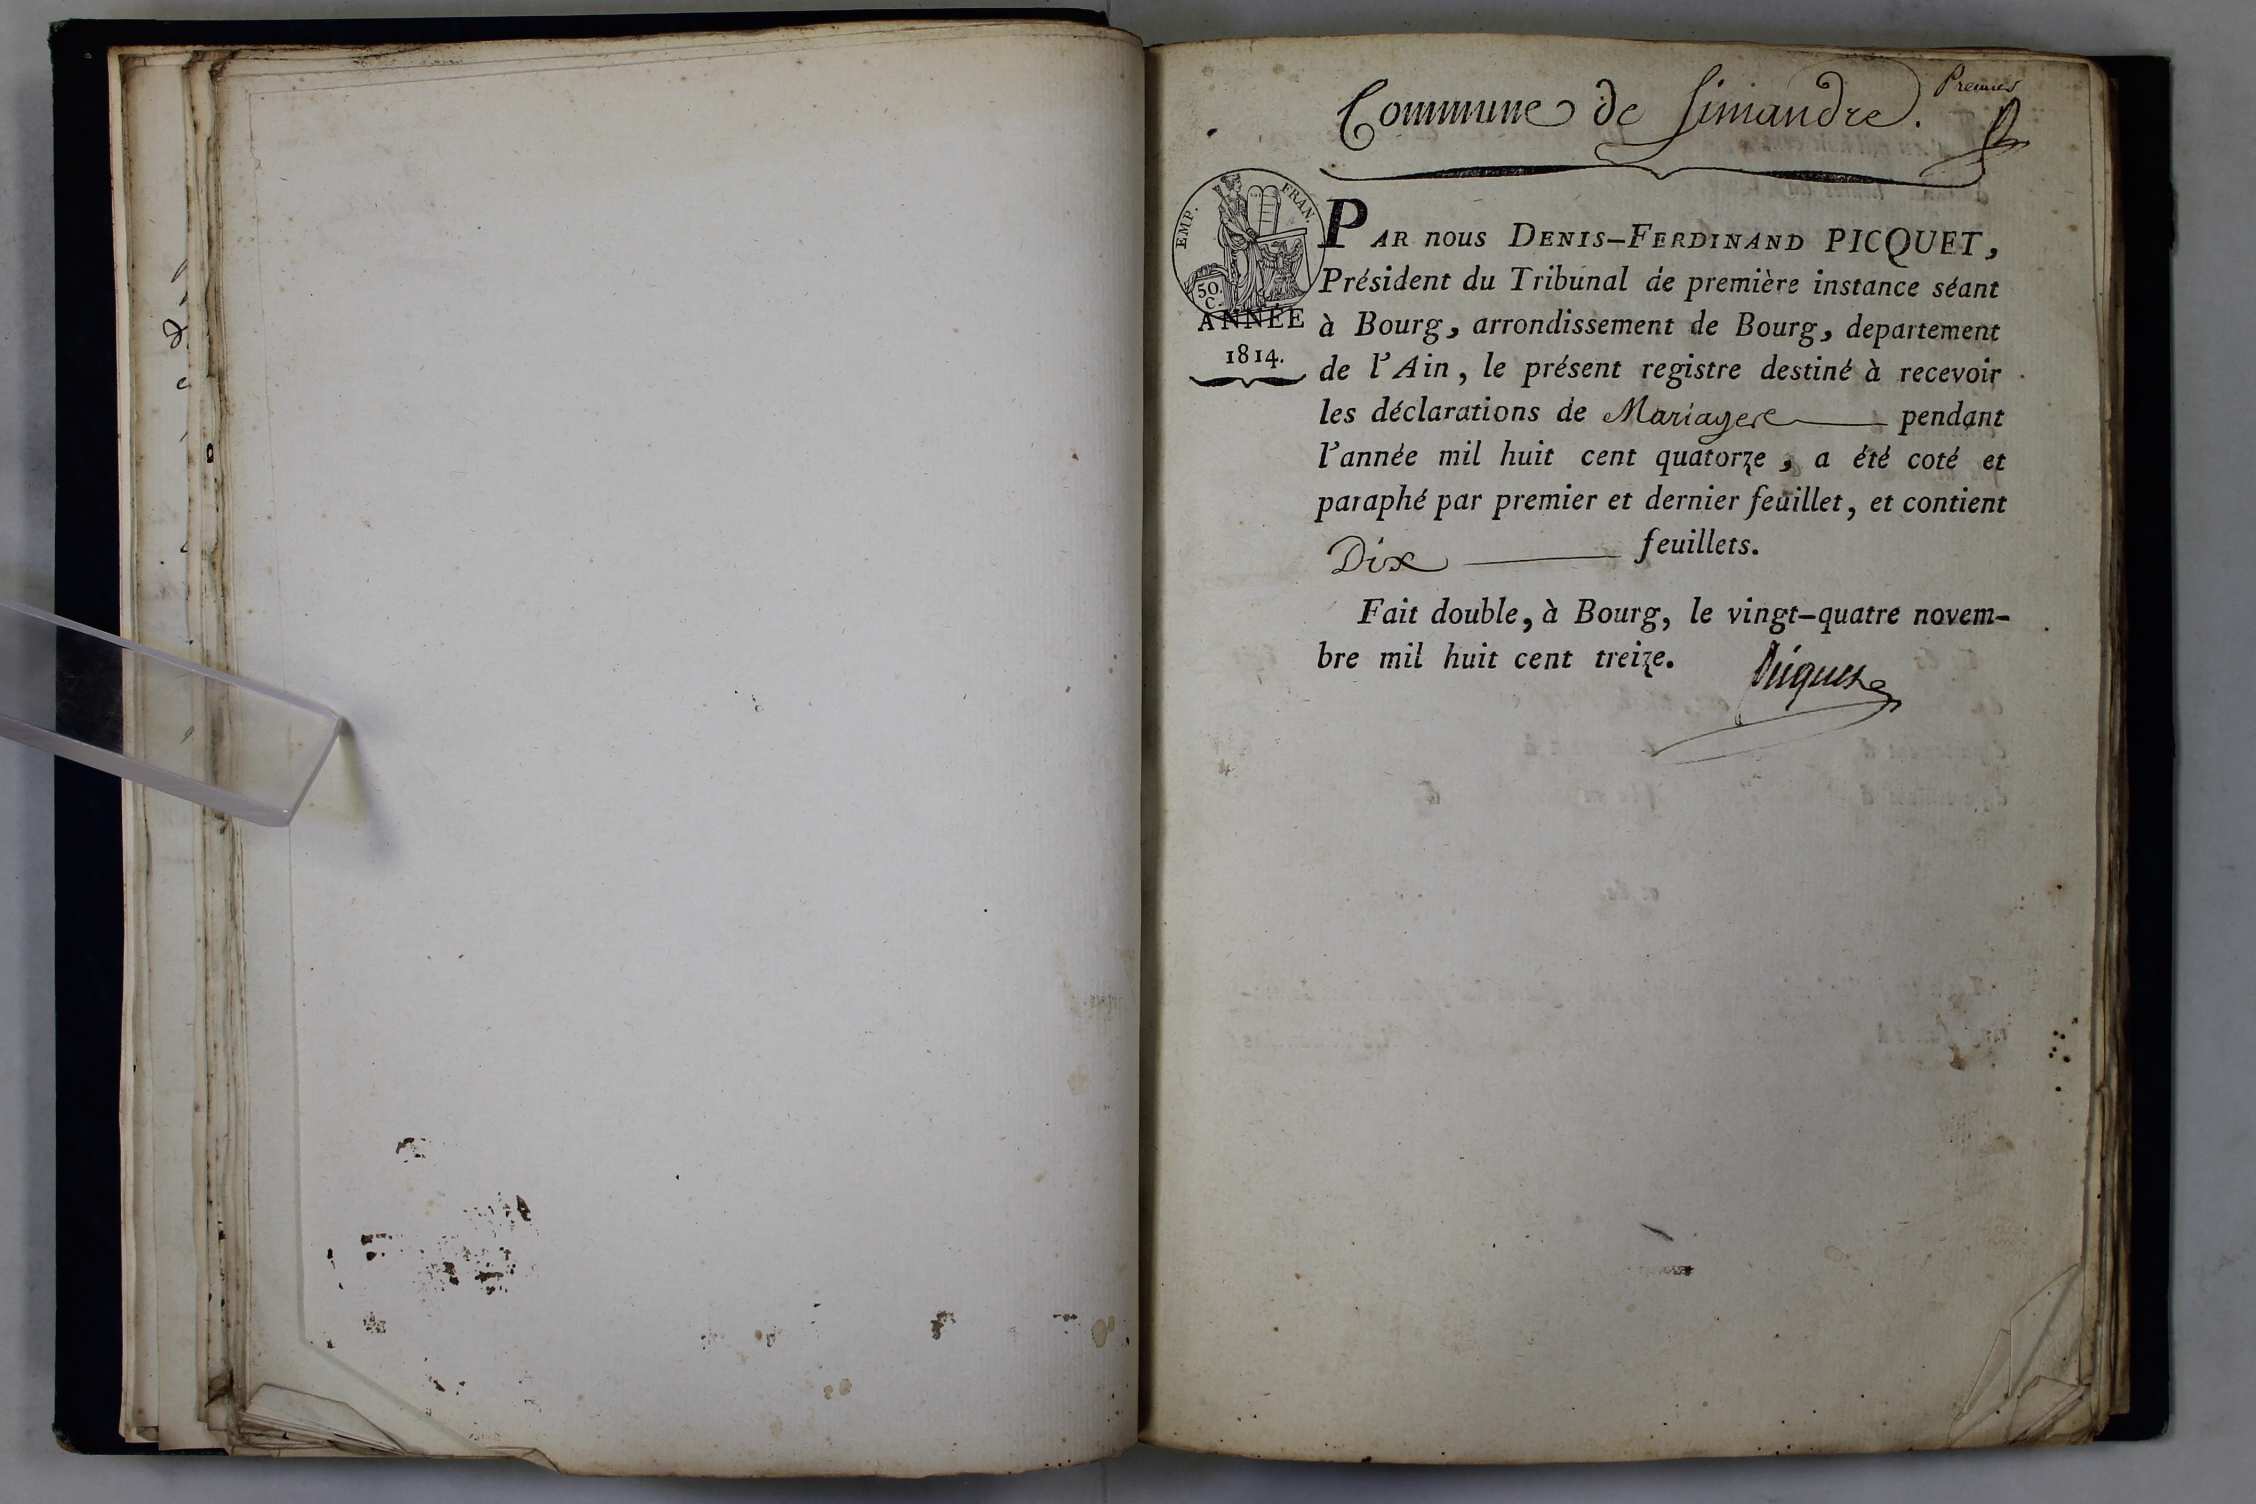 Premier
Commune de Simandre.
EMP. FRAN.
50.
C.
ANNÉE
1814.
PAR nous DENIS-FERDINAND PICQUET,
Président du Tribunal de première instance séant
à Bourg, arrondissement de Bourg, departement
de l'Ain, le présent registre destiné à recevoir
les déclarations de Mariages pendant
l'année mil huit cent quatorze, a été coté et
paraphé par premier et dernier feuillet, et contient
Dix feuillets.
Fait double, à Bourg, le vingt-quatre novem-
bre mil huit cent treize.
Picquet